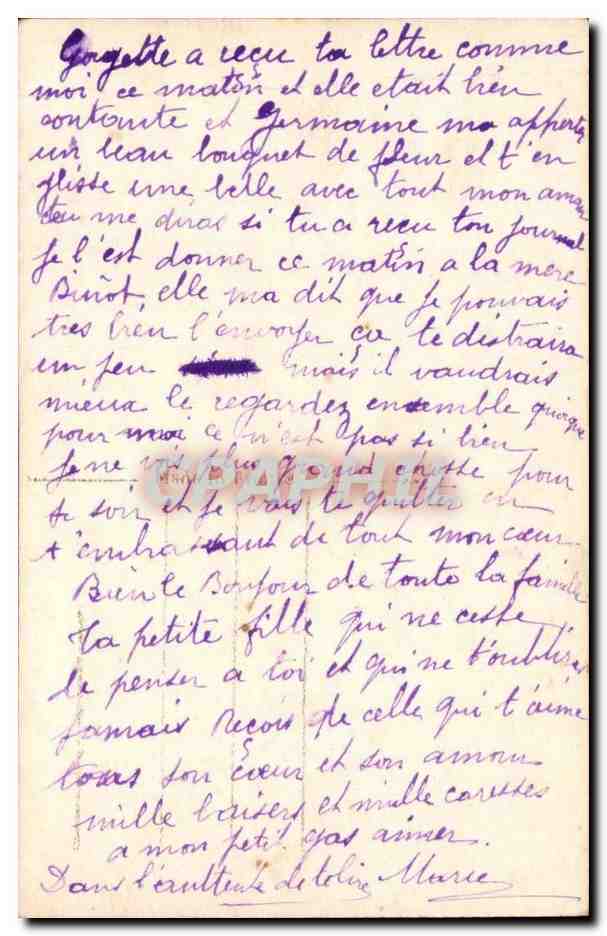 Georgette a reçu ta lettre comme
moi ce matin et elle etait bien
contante et Germaine ma apporter
un beau bouquet de fleur et t'en
glisse une belle avec tout mon amour
tu me diras si tu a recu ton journal
je l'est donner ce matin a la mere
Binot, elle ma dit que je pouvais
tres bien l'envoyer ca te distraira
un peu mais il vaudrais
mieux le regardez ensemble quoique
pour moi ce n'est pas si bien
Je ne vois plus grand chosse pour
ce soir et je vais te quitter en
t'embrassant de tout mon cœur
Bien le Bonjour de toute la famille
ta petite fille qui ne cesse
de penser a toi et qui ne t'oublieras
jamais Reçois de celle qui t'aime
tous son cœur et son amour
mille baisers et mille caresses
a mon petit gas aimer.
Dans l'auttente de te lire Marie
CPAPHIL